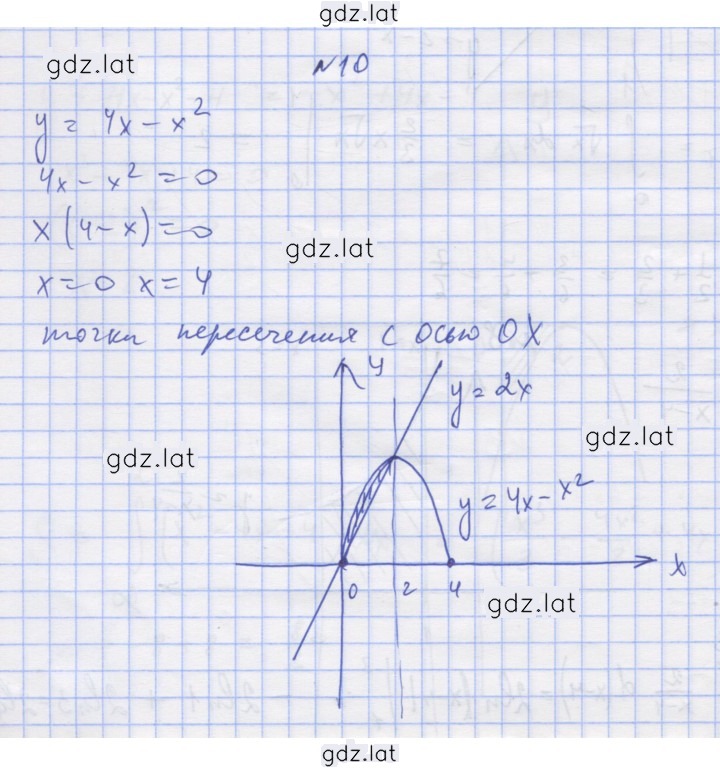 gdz.lat
gdz.lat
№10
y = 4x - x²
4x - x² = 0
x(4 - x) = 0
gdz.lat
x = 0 x = 4
точки пересечения с осью OX
y
y = 2x
gdz.lat
gdz.lat
y = 4x - x²
x
0 2 4
gdz.lat
gdz.lat